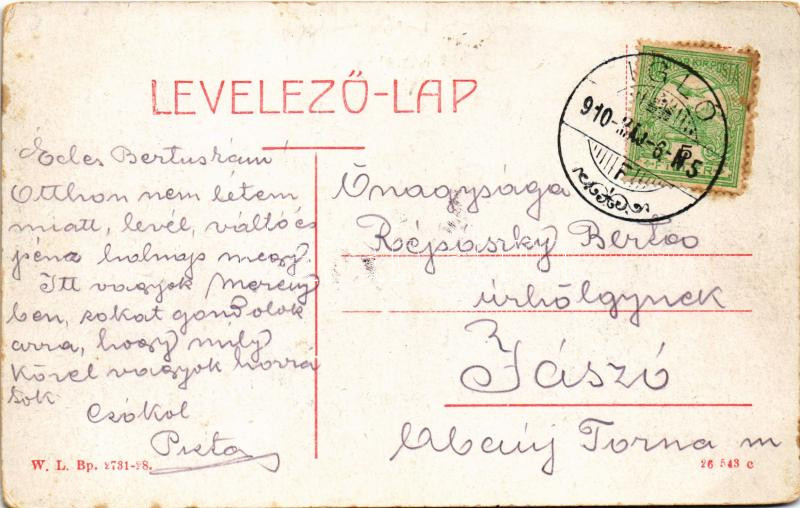 LEVELEZŐ-LAP
Édes Bertuskám
Otthon nem létem
miatt, levél, váltó és
pénz holnap megy.
Itt vagyok
ben, sokat gondolok
arra, hogy mily
közel vagyok hozzá
tok
Csókol
Pista
W. L. Bp. 2731-28.
IGLÓ
910 MÁJ -6 -N5
F
5
Őnagysága
Répászky Berta
úrhölgynek
Jászó
Abauj Torna m
26 543 c